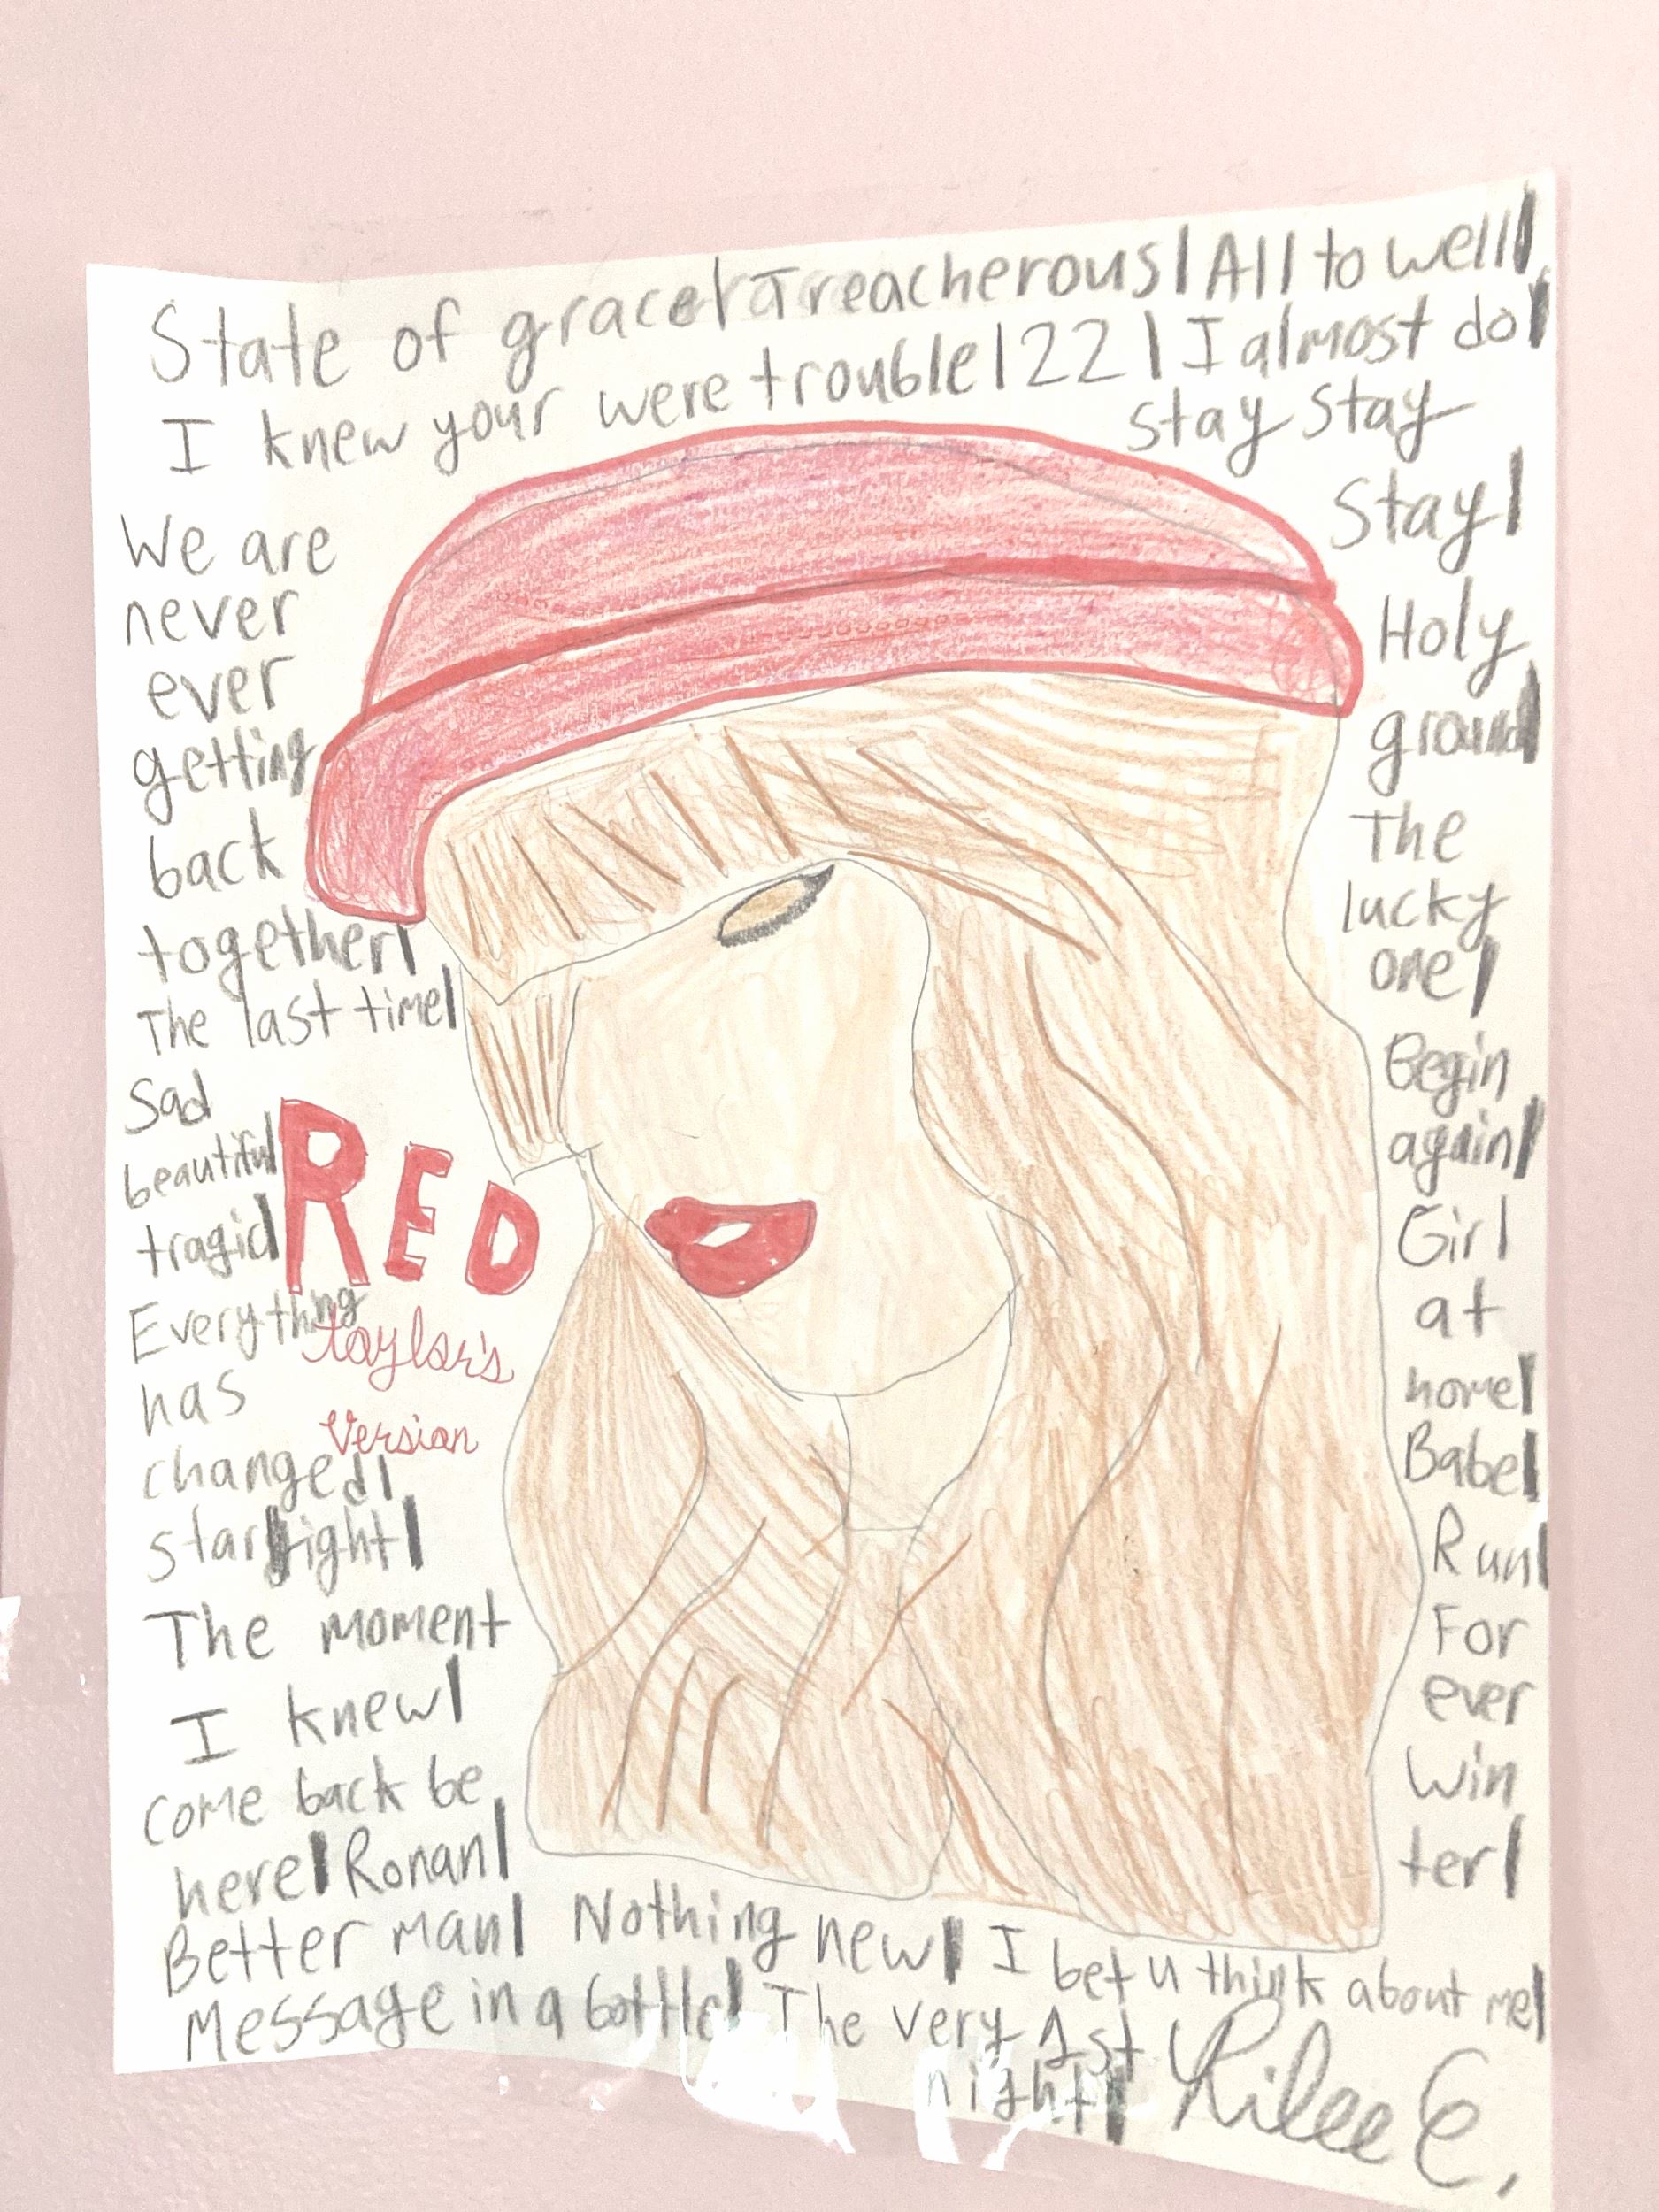 State of grace| Treacherous| All to well|
I knew your were trouble| 22 | I almost do|
Stay Stay
Stay|
We are
never
ever
getting
back
together|
The last time|
Sad
beautiful
tragic|
Everything
has
changed|
starlight|
The moment
I knew|
come back be
here| Ronan|
RED
taylor's
Version
Holy
ground|
The
lucky
one|
Begin
again|
Girl
at
home|
Babe|
Run|
For
ever
win
ter|
Better man| Nothing new| I bet u think about me|
Message in a bottle| The very 1st
night|
Rilee E.